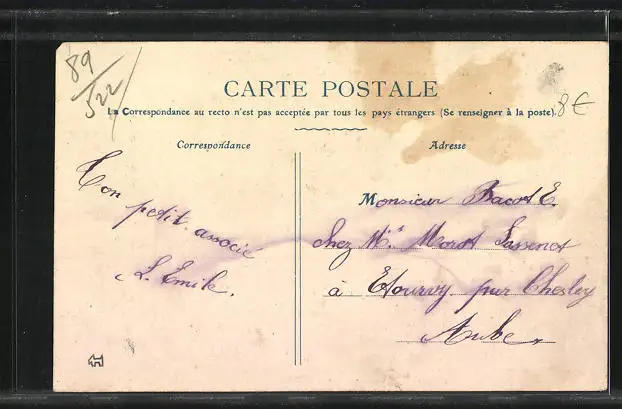 89/522
CARTE POSTALE
La Correspondance au recto n'est pas acceptée par tous les pays étrangers (Se renseigner à la poste).
8€
Correspondance
Adresse
Ton
petit associé
L. Emile.
Monsieur Bacot E.
chez Mr Morot Sassenot
à Etourvy par Chesley
Aube